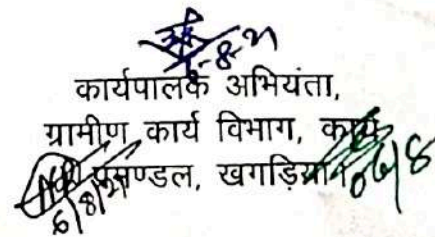 6-8-21
कार्यपालक अभियंता,
ग्रामीण कार्य विभाग, कार्य
प्रमण्डल, खगड़िया।
6/8/21 06/8